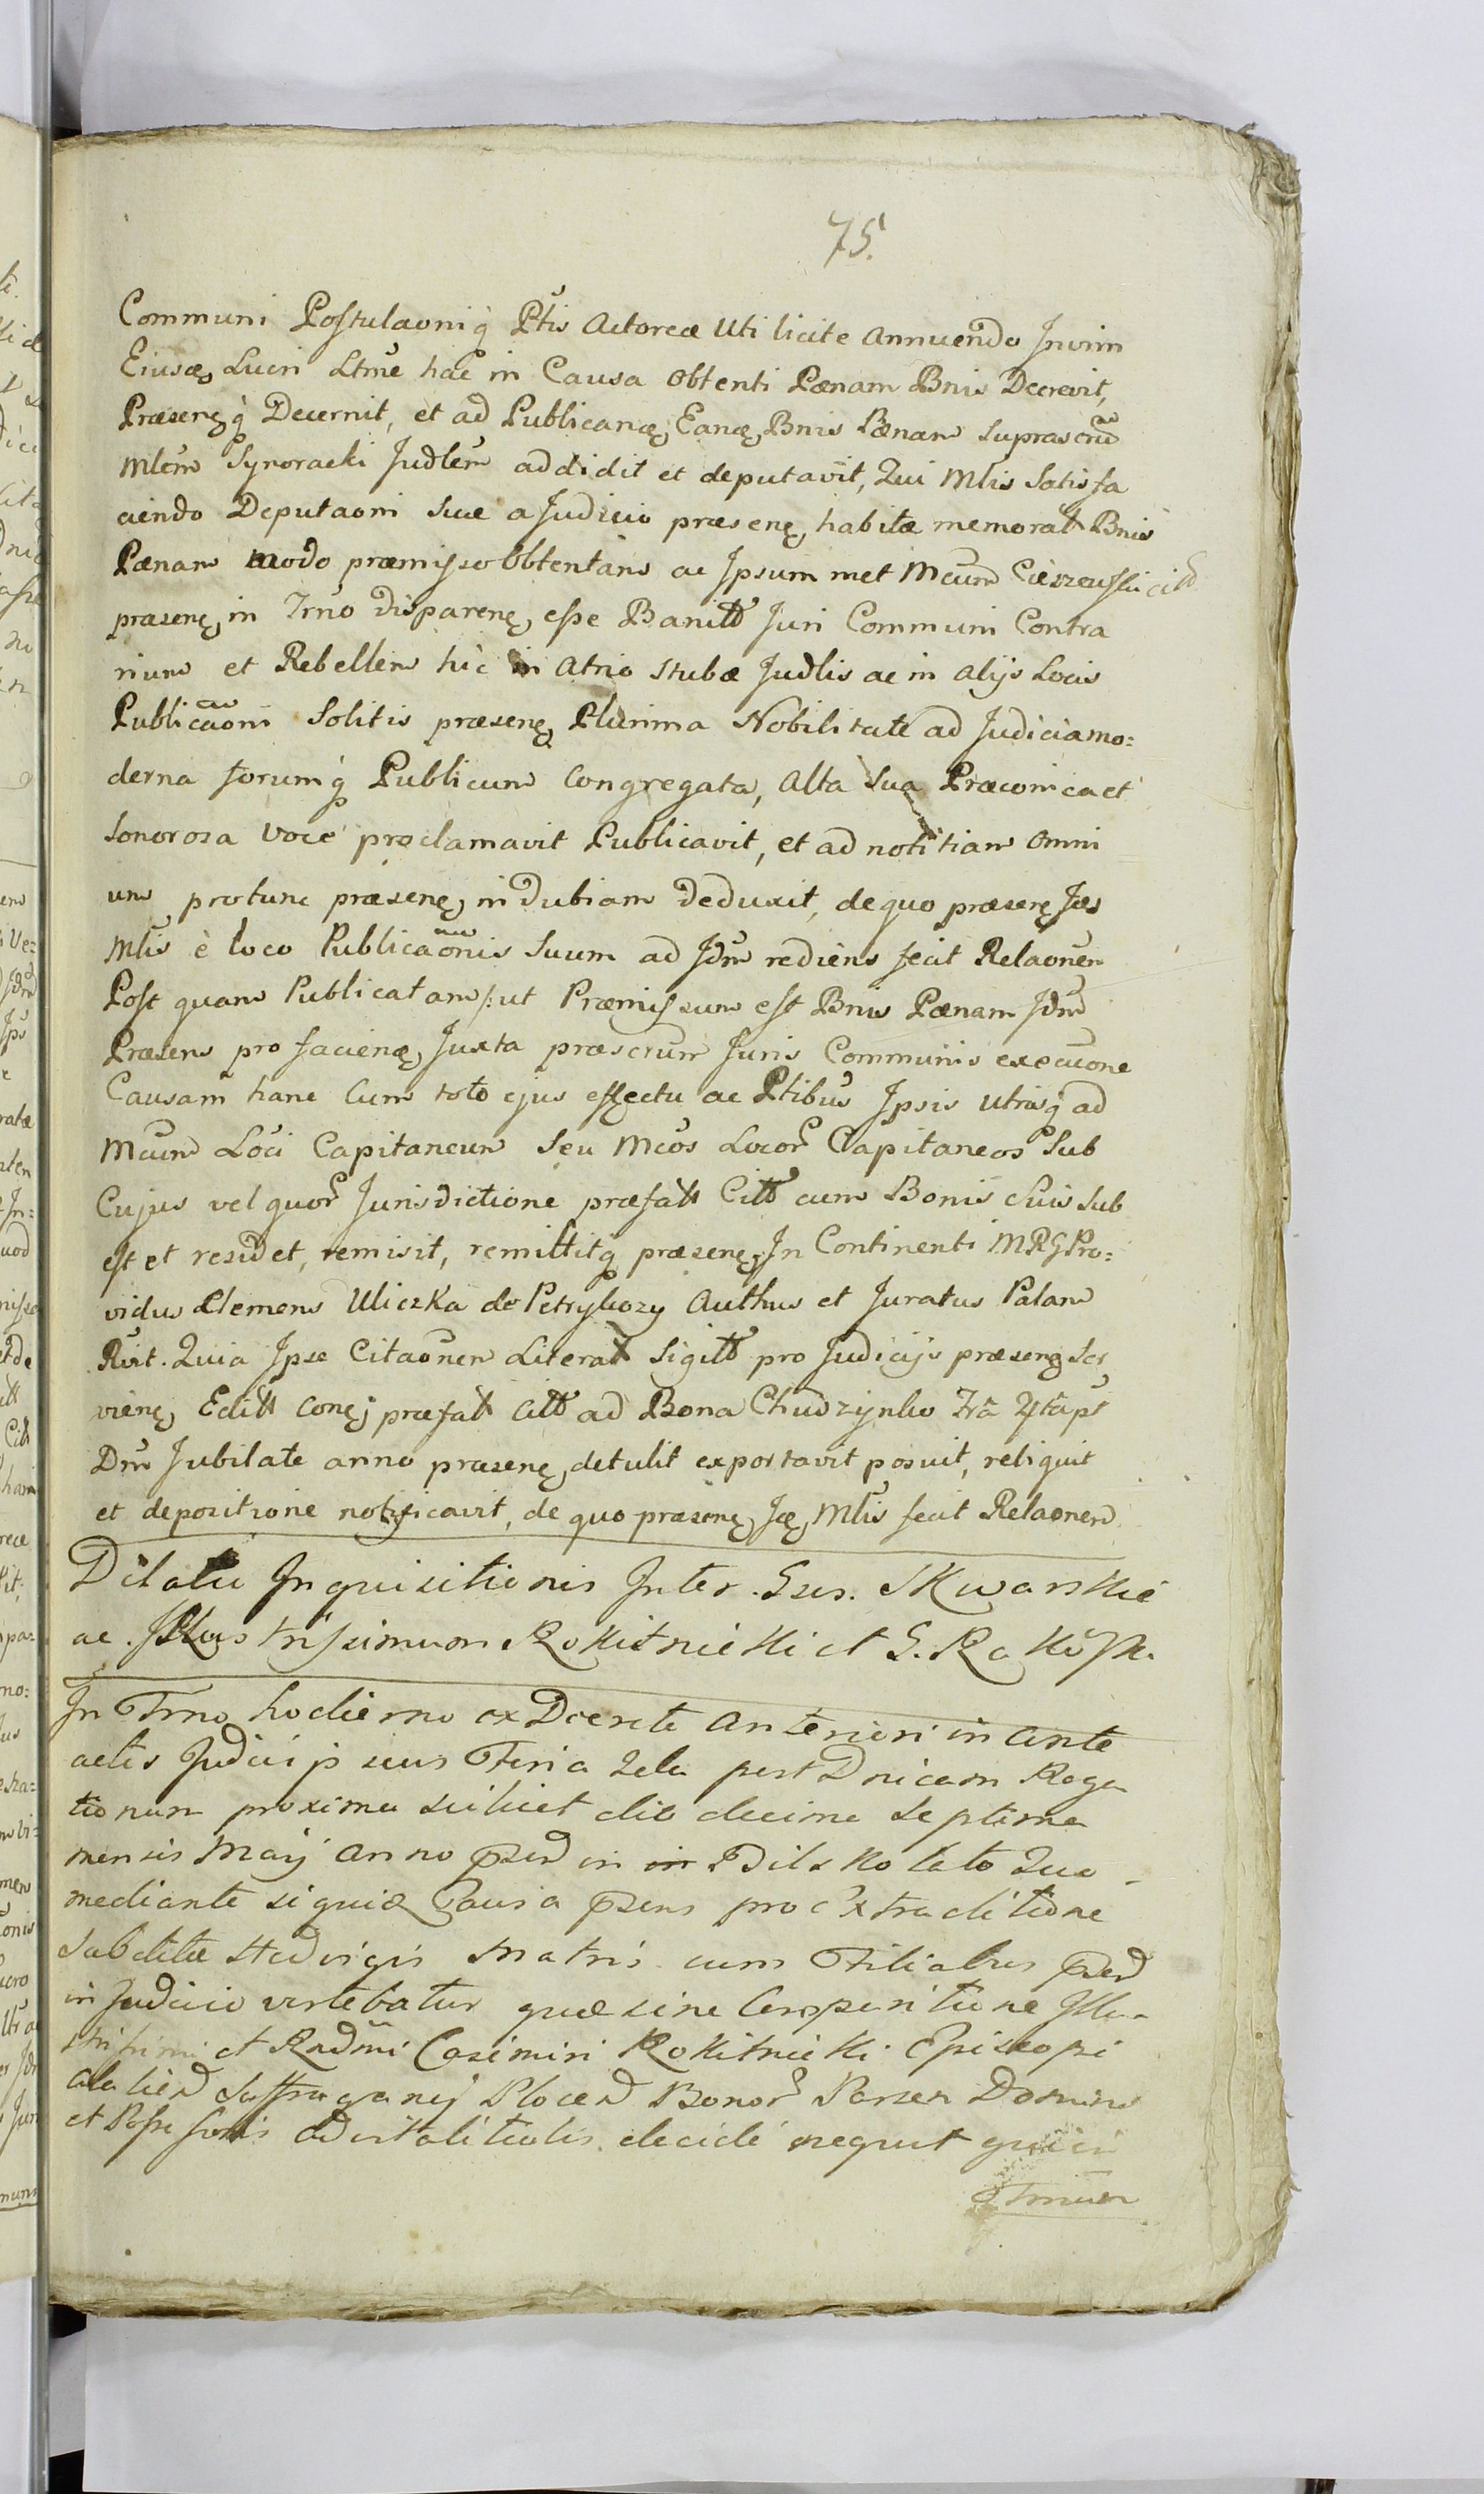 75.
Communi Postulaoniq̃ Ptis Actoreæ Uti licite annuendo Jnvim
Eiusdę Lucri Ltmẽ hac in Causa Obtenti Pænam Bnis Decrevit,
Præsenęq̃ Decernit, et ad Publicandę Eandę Bnis Pænam suprascrũ
Mlem Synoracki Judlem addidit et deputavit, Qui Mlis Satisfa
ciendo Deputaoni Suæ a Judicio præsenę habitæ memorat Bnis
Pænam modo præmisso Obtentam ac Jpsum met Mcum Cieszewski citt
præsenę in Trno disparenę, esse Banitt Juri Communi Contra
rium et Rebellem hic in Atrio Stubæ Judlis ac in alijs Locis
Publicãoni Solitis præsenę Plurima Nobilitate ad Judicia mo:
derna forumq̃ Publicum Congregata, Alta Sua Præconica et
Sonorosa Voce proclamavit Publicavit, et ad notitiam Omni
um protunc præsenę indubiam deduxit, de quo præsenę Jæs
Mlis è loco Publicaõnis Suum ad Jdm rediens fecit Relaonem
Post quam Publicatam /:ut Præmissum est Bnis Pænam Jdm
Præsens pro faciendę Juxta præscrum Juris Communis execuone
Causam hanc Cum toto ejus effectu ac Ptibus Jpsis utrisq̃ ad
Mcum Loci Capitaneum Seu Mcos Locor Capitaneos Sub
Cujus vel quor Jurisdictione præfatt Citt cum Bonis Suis Sub
est et residet, remisit, remittitq̃ præsenę. Jn Continenti MRG Pro:
vidus Clemens Uliczka de Petrykozy Authus et Juratus Palam
Rvit. Quia Jpse Citaõnem Literat Sigitt pro Judicijs præsenę Ser
vienę Editt præfat Citt ad Bona Chudzynko
Dm Jubilate anno præsenę, detulit exportavit posuit, reliquit
et depositione notificavit, de quo præsenę Jæ, Mlis fecit Relaonem
Dilatio Jnquisitionis Jnter Gsos. Skwarskie
ac Jllustrissimum Rokitnicki et G. Rakowsk.
Jn Trno hodierno ex Decreto anteriori in ante
actis Judicijs seus Feria 2da post Dnicam Roga
tionum proxima scilicet die decima septima
mensis Maij anno pserd in in Bilsko lato Quo
mediante siquidę Causa psens pro extraditione
Subditæ Hedvigis Matris cum Filiabus pserd
in Judicio vertebatur quæ sine Comparitione Jllu-
strissimi et Rndmi Casimiri Rokitnicki Episcopi
Suffraganej Plocen Bonor Parzen Domini
et Possessoris advitalitialis decidi nequit
Trmum